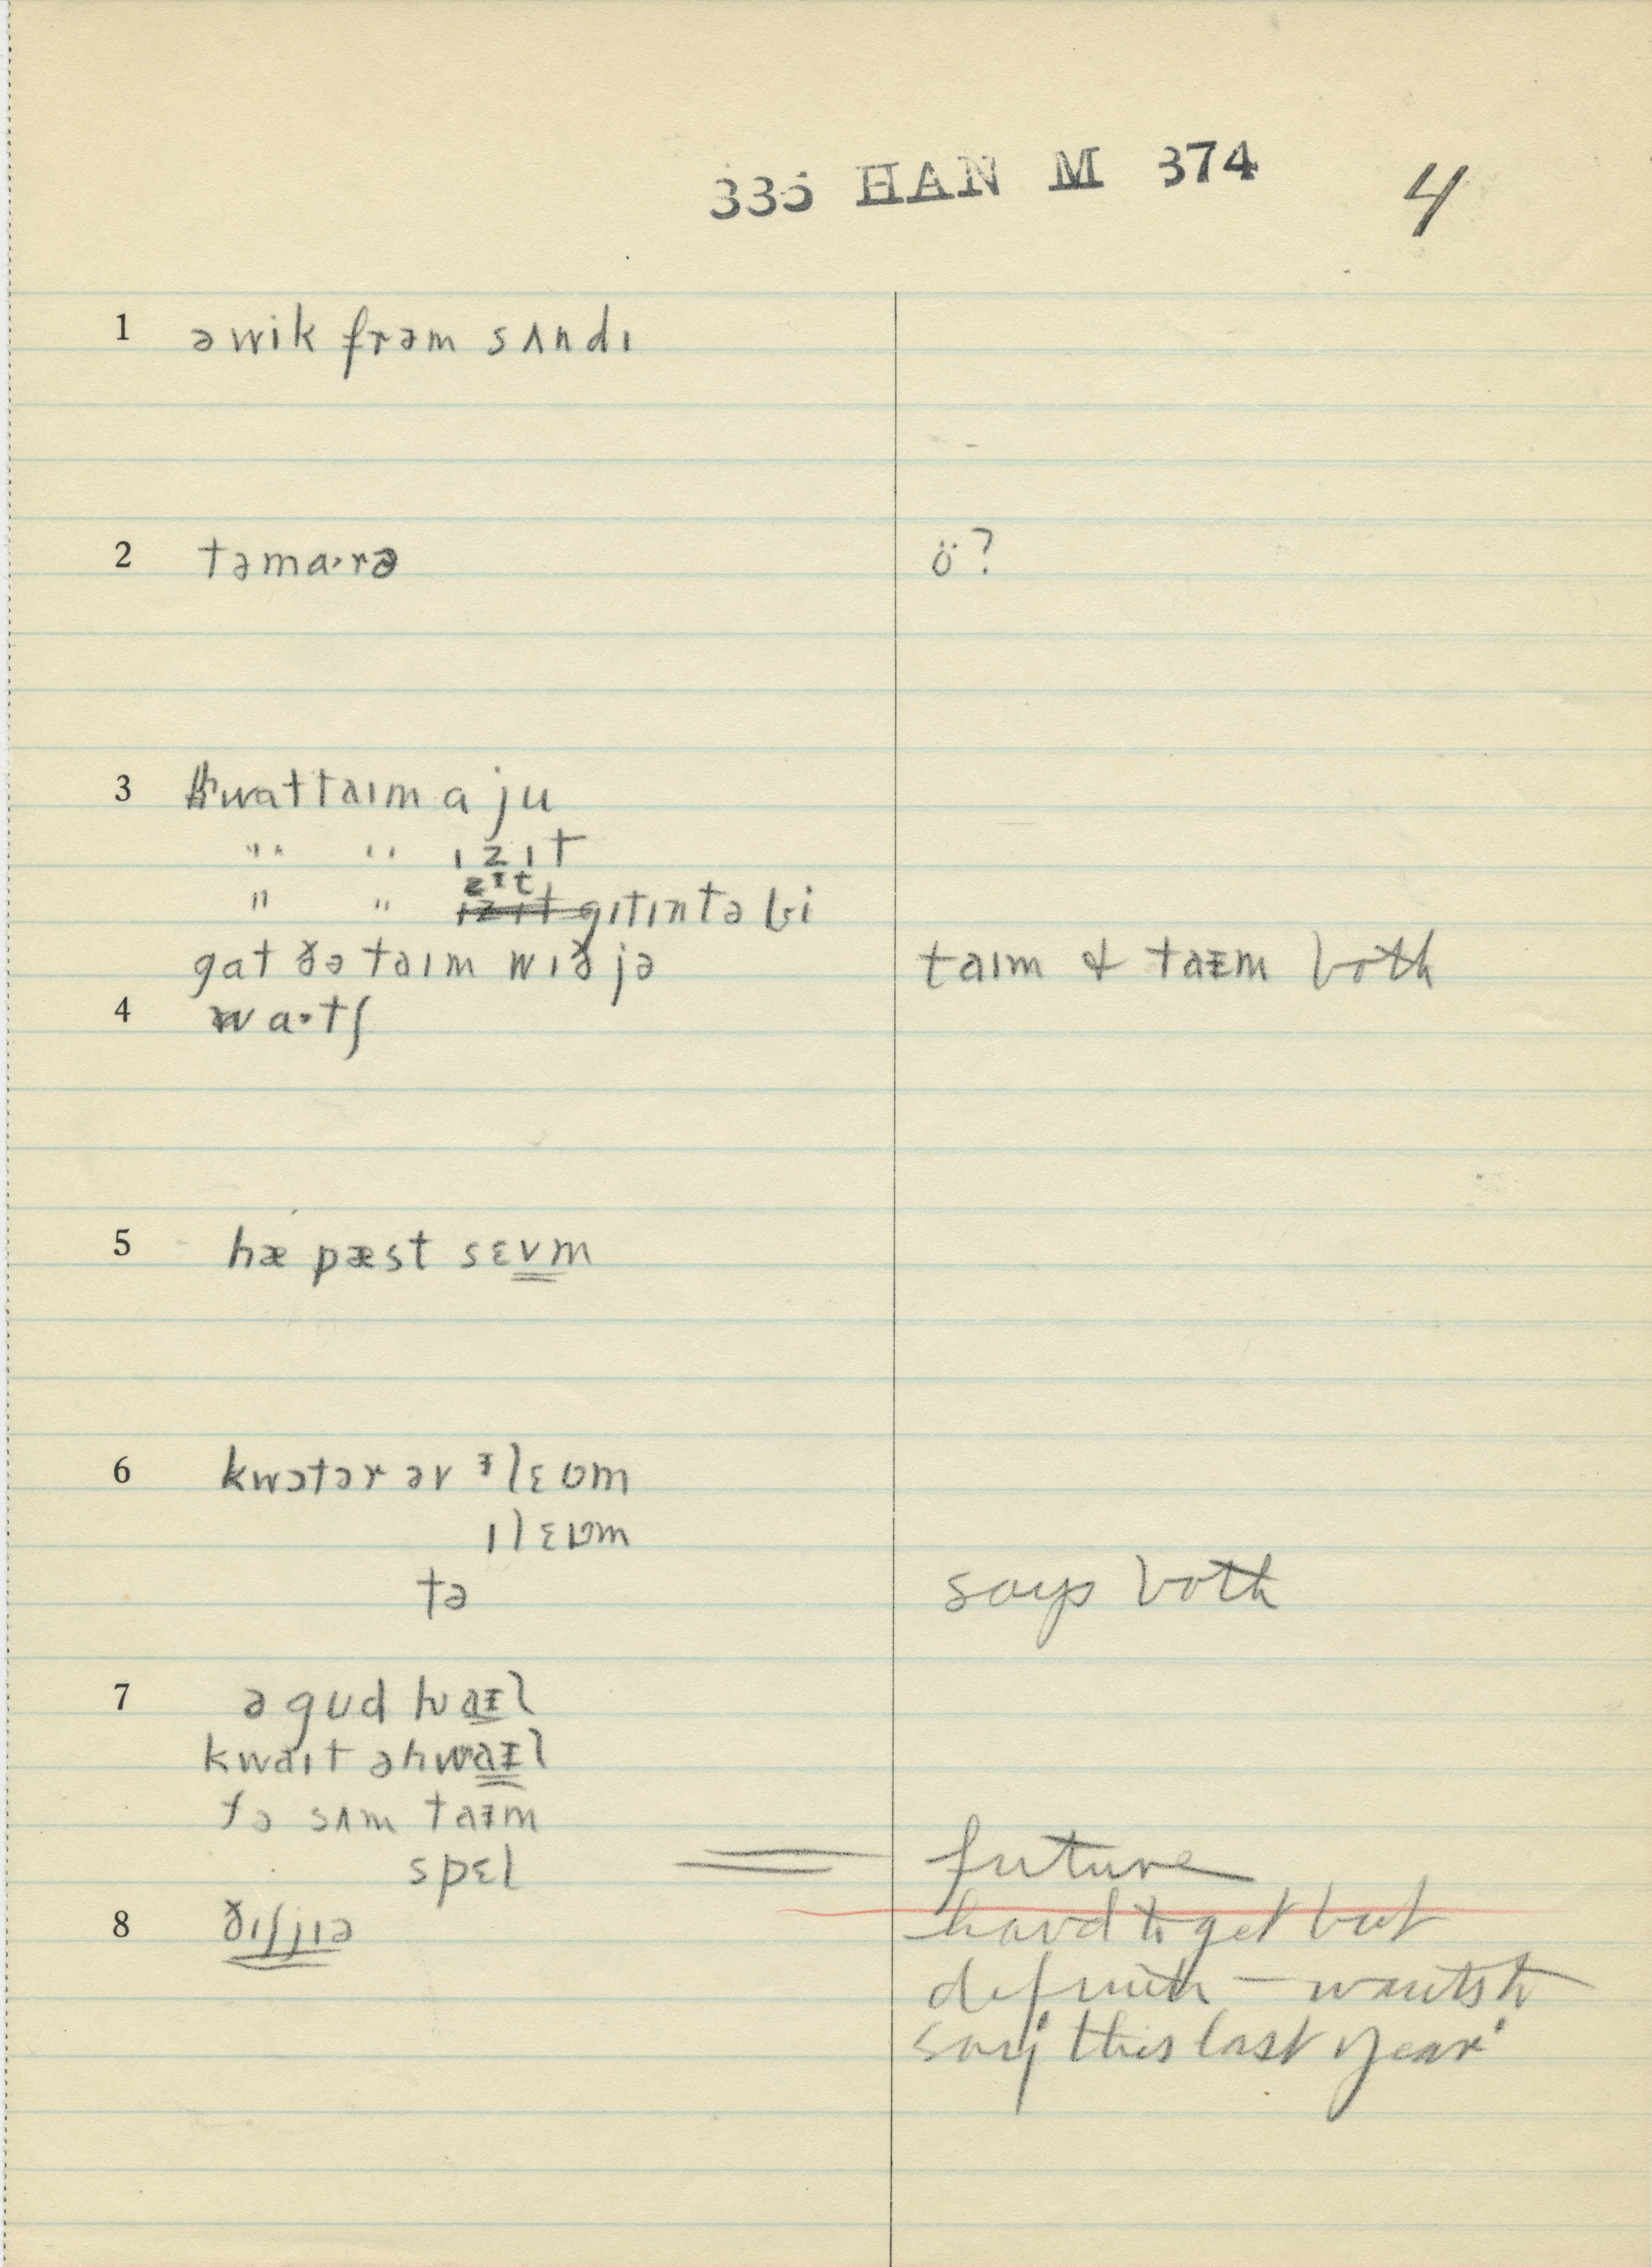 335 HAN M 374 4
1 ə wik frəm sʌndɪ
2 təma·rə ö?
3 hwat taɪm a ju
" " ɪz ɪt
" " zɪt gɪtɪn tə bi
gat ðə taɪm wɪð jə taɪm & taᵻm both
4 wa·tʃ
5 hæ pæst sɛvm
6 kwɔtər əv ᵻlɛʊm
ɪlɛʊm
tə says both
7 ə gud hwaᵻl
kwaɪt ə hwaᵻl
fə sʌm taᵻm
spɛl future
8 ðɪʃjɪə hard to get but
definite — wants to
say 'this last year'